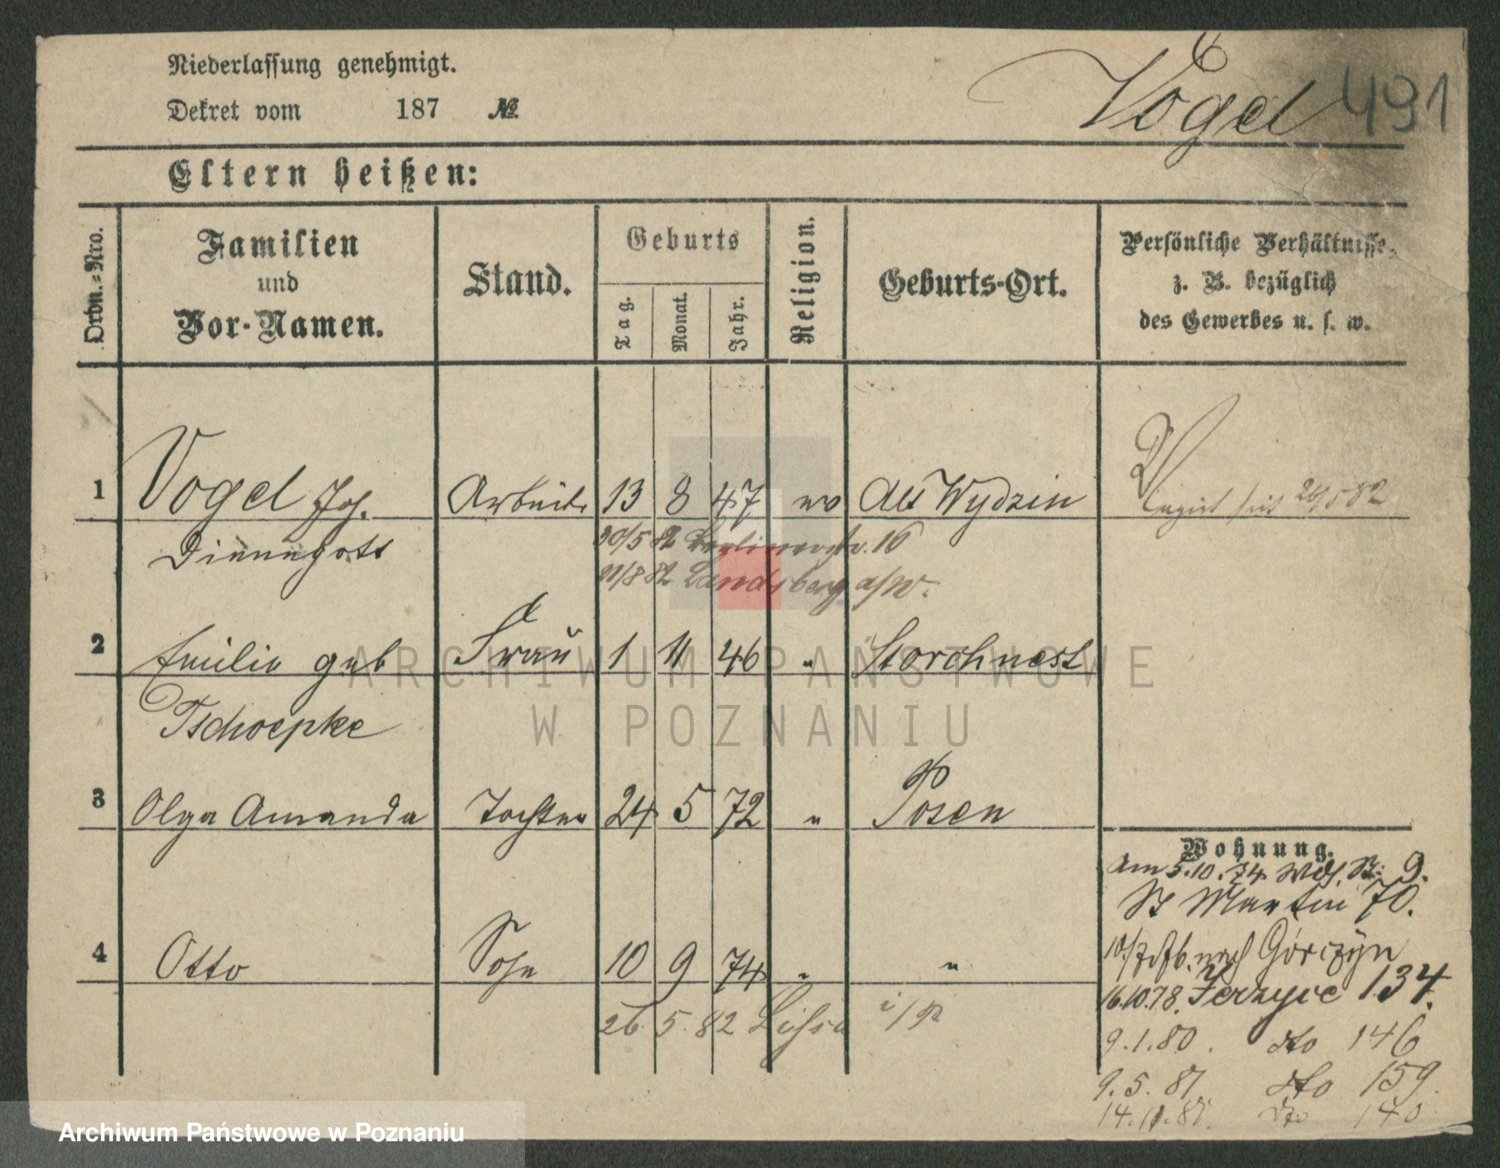 Niederlassung genehmigt.
Dekret vom 187 №
Vogel 491
Eltern heißen:
Ordn.-Nro.
Familien
und
Vor-Namen.
Stand.
Geburts
Tag.
Monat.
Jahr.
Religion.
Geburts-Ort.
Persönliche Verhältnisse,
z. B. bezüglich
des Gewerbes u. s. w.
1 Vogel Joh. Arbeit. 13 8 47 ev Alt Wydzin
seit 29/5 82
Dienegott
30/5 82 Berlinerstr. 16
21/8 82 Landsberg a/W.
2 Emilie geb Frau 1 11 46 " Storchnest
Tschoepke
3 Olga Amanda Tochter 24 5 72 " Posen
4 Otto Sohn 10 9 74 " "
26. 5. 82 i/P
Wohnung.
Am 5.10.74 9.
St Martin 70.
nach Górczyn
16.10.78. Jerzyce 134.
9.1.80. dto 146
9.5.81. dto 159
14.11.81. dto 140
ARCHIWUM PAŃSTWOWE
W POZNANIU
Archiwum Państwowe w Poznaniu